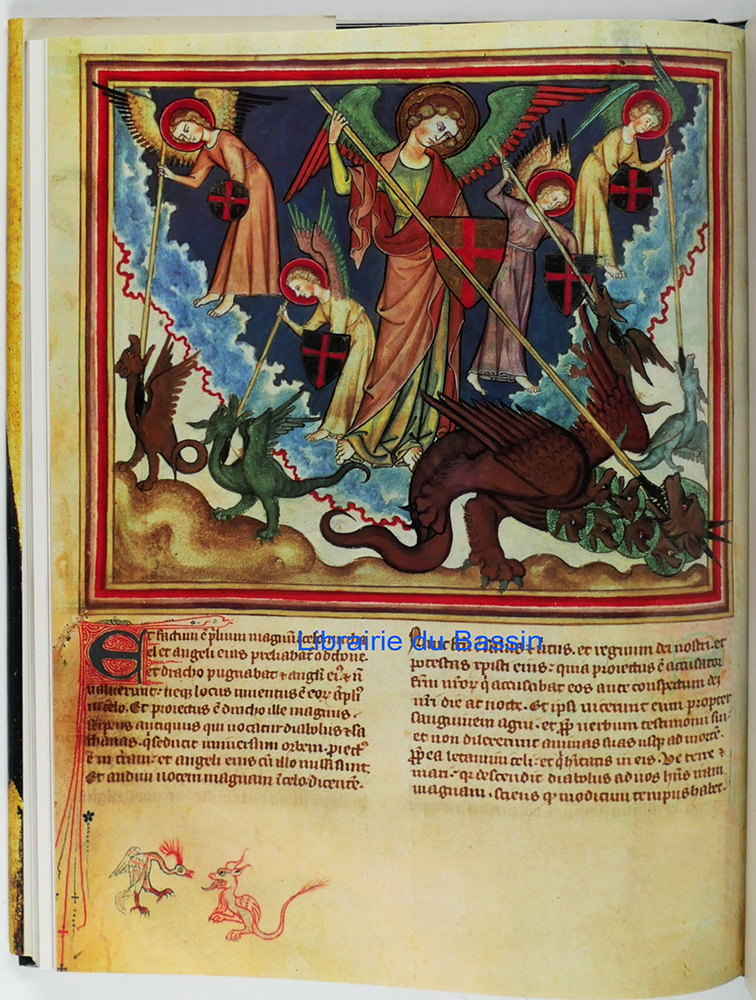 Et factum ē plium magnū ī celo michahel
el et angeli eius preliabāt̄ cū dͨone.
et dracho pugnabat ⁊ angli eiꝰ ⁊ n̄
ualuerunt. neqꝫ locus inuentus ē eoꝝ āpliꝰ
in celo. Et proiectus ē dracho ille magnus.
serpens antiquus qui uocatur diabolus ⁊ sa
thanas. q̇ seducit uniuersum orbem. ꝓiectꝰ
ē in t̄ram. et angeli eius cū illo missi sunt.
Et audiui uocem magnam ī celo dicentē.
Librairie du Bassin
salus ⁊ uirtus. et regnum dei nostri. et
potestas xpisti eius. quia proiectus ē accusator
fr̄m nr̄oꝝ q̇ accusabat eos ante conspectum dei
nr̄i die ac nocte. Et ipsi uicerunt eum propter
sanguinem agni. et ꝓp̄ uerbum testimonii sui.
et non dilexerunt animas suas usqꝫ ad mortē.
ꝓp̄ea letamini celi. et q̇ hītatis in eis. Ve terre ⁊
mari. qꝛ descendit diabolus ad uos hn̄s iram
magnam. sciens qͩ modicum tempus habet.